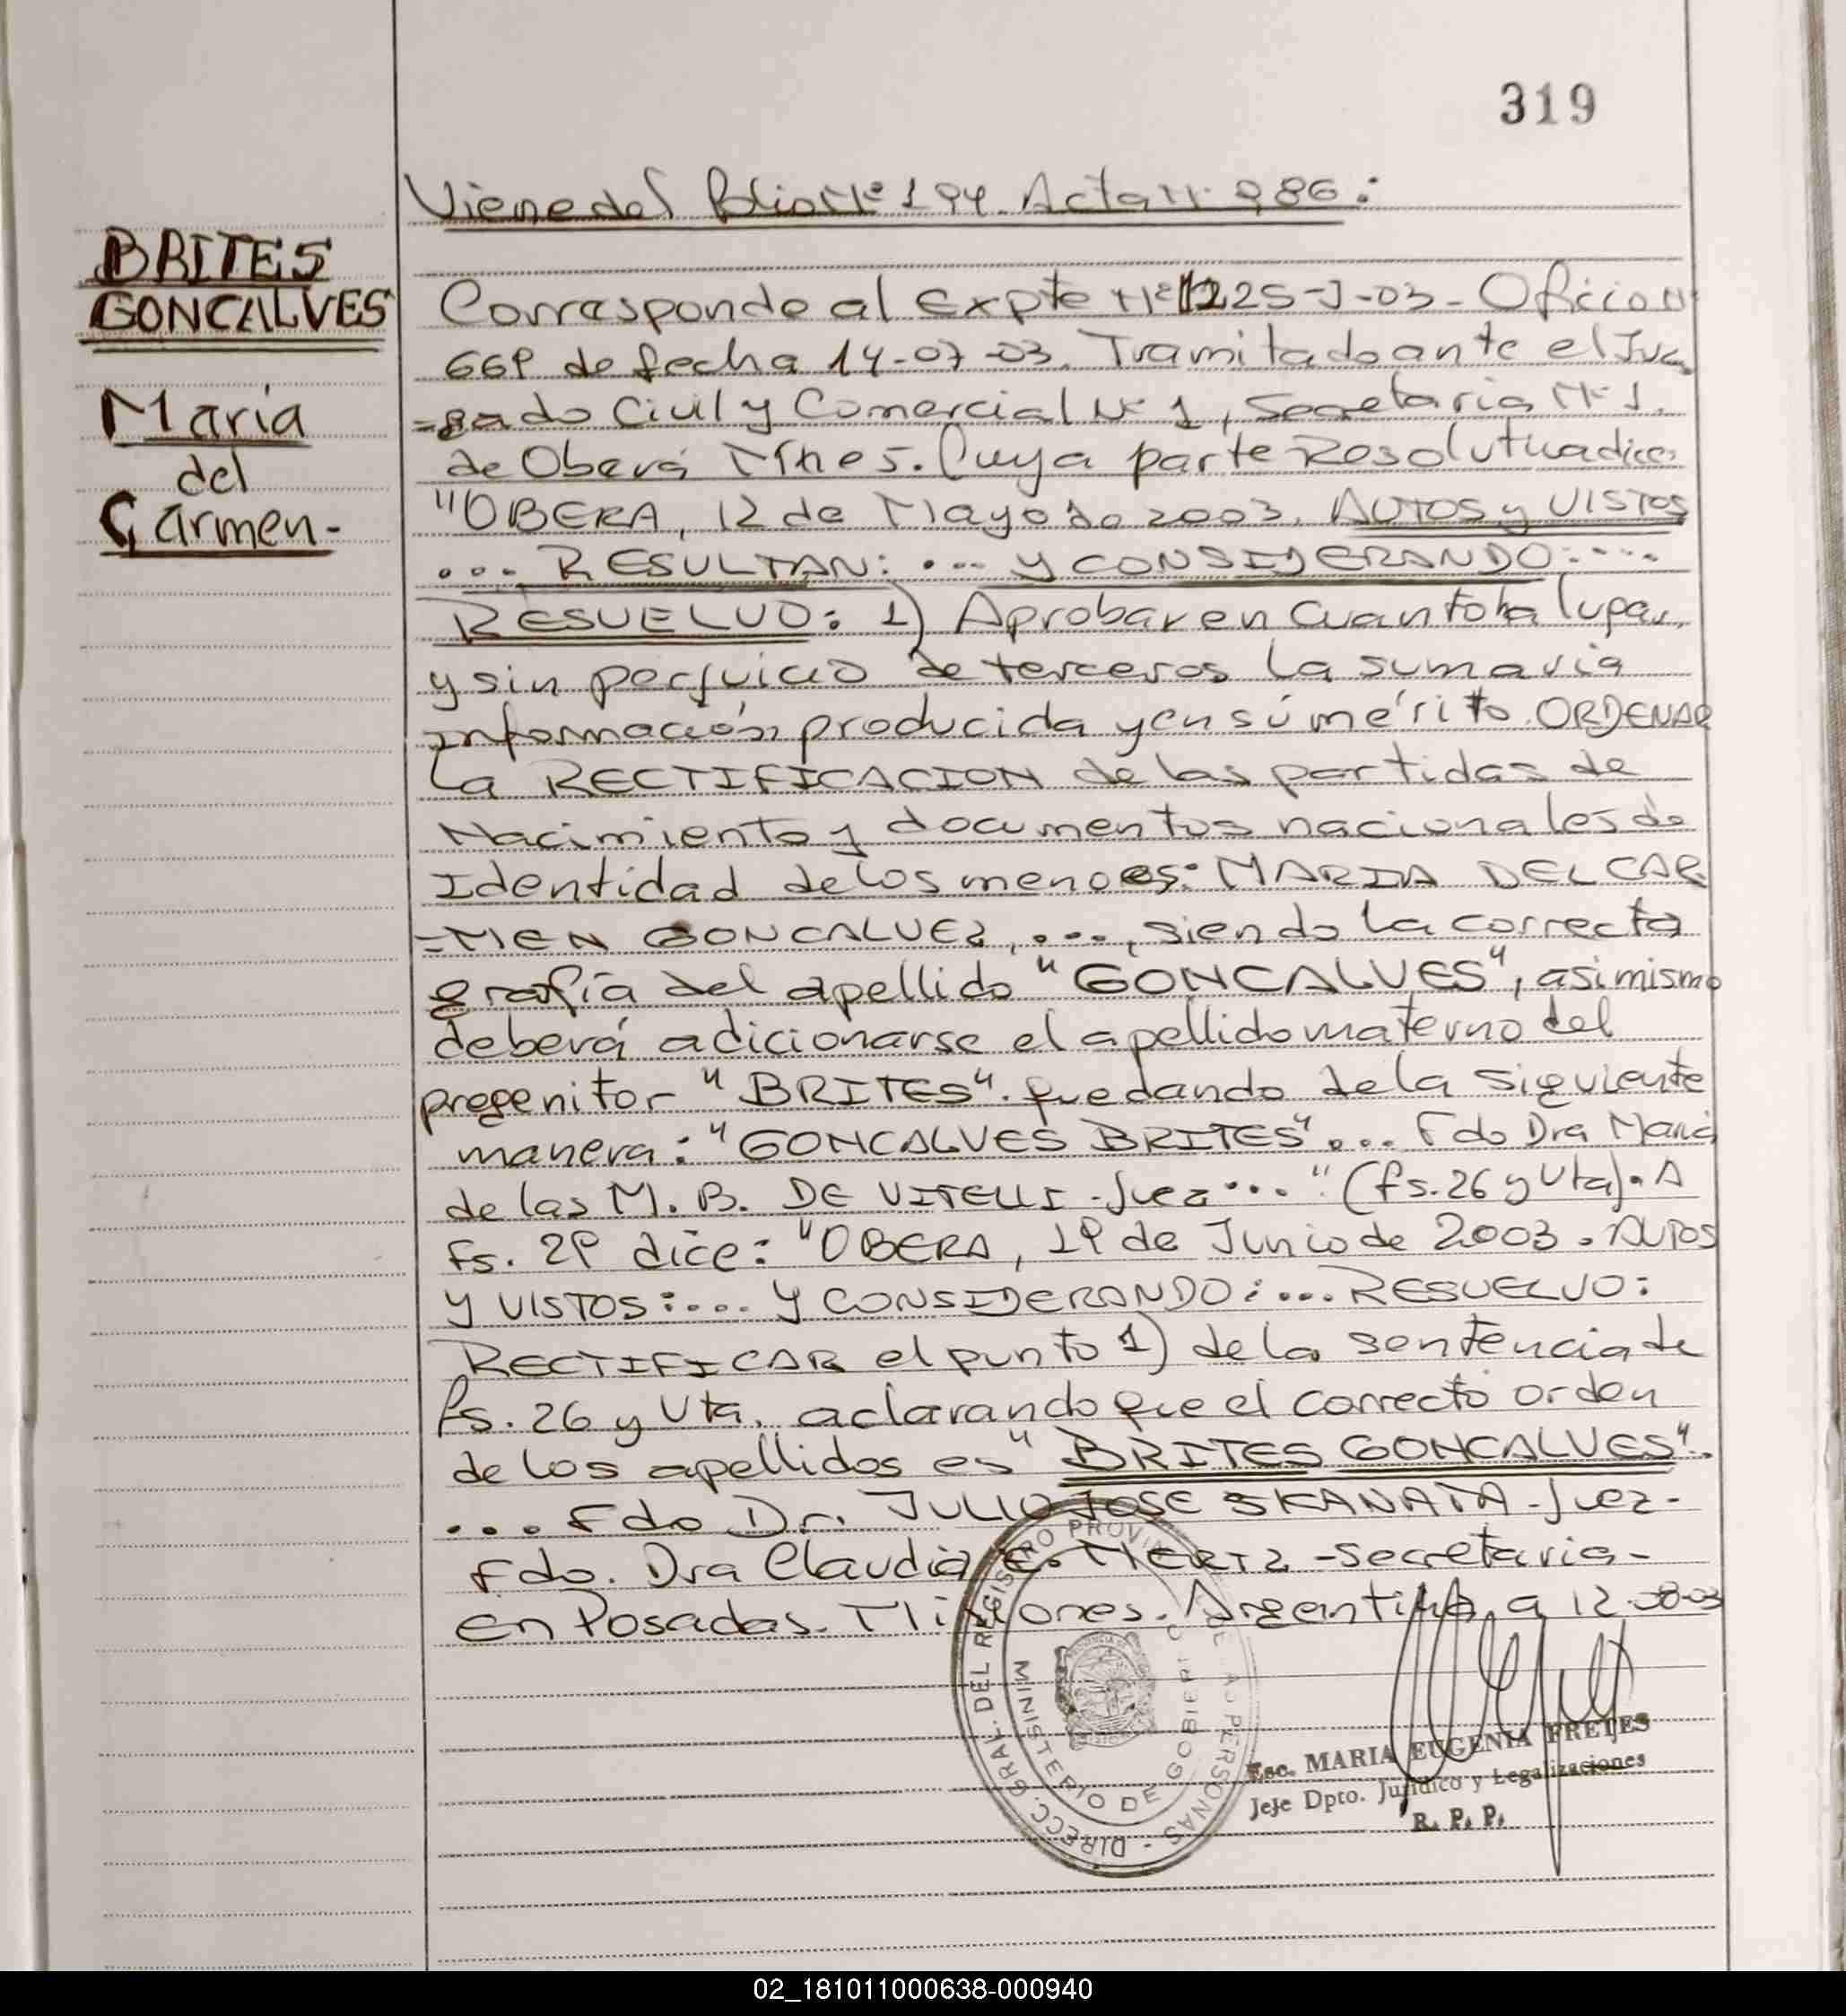 319
Viene del Folio Nº 194. Acta Nº 986:
BRITES
GONCALVES
Maria
del
Carmen-
Corresponde al Expte Nº 1225-J-03- Oficio Nº
669 de fecha 14-07-03. Tramitado ante el Juz
=gado Civil y Comercial Nº 1, Secretaria Nº 1.
de Oberá Mnes. Cuya parte Resolutiva dice:
"OBERA, 12 de Mayo de 2003. AUTOS y VISTOS
... RESULTAN: ... y CONSIDERANDO:....
RESUELVO: 1) Aprobar en cuanto ha lugar,
y sin perjuicio de terceros la sumaria
información producida y en sú mérito ORDENAR
la RECTIFICACION de las partidas de
Nacimiento y documentos nacionales de
Identidad de los menores: MARIA DEL CAR
=MEN GONCALVEZ, ..., siendo la correcta
grafía del apellido "GONCALVES", asimismo
deberá adicionarse el apellido materno del
progenitor "BRITES". quedando de la siguiente
manera: "GONCALVES BRITES"... Fdo Dra Maria
de las M. B. DE VITELLI -Juez..." (fs. 26 y Vta). A
fs. 29 dice: "OBERA, 19 de Junio de 2003. AUTOS
y VISTOS:.... y CONSIDERANDO:... RESUELVO:
RECTIFICAR el punto 1) de la sentencia de
fs. 26 y Vta. aclarando que el correcto orden
de los apellidos es "BRITES GONCALVES".
... Fdo Dr. JULIO JOSE SKANATA -Juez-
Fdo. Dra Claudia E. MERTZ -Secretaria-
En Posadas. Misiones. Argentina a 12-08-03
DIRECC. GRAL. DEL REGISTRO PROVINCIAL DE LAS PERSONAS -
MINISTERIO DE GOBIERNO
Esc. MARIA EUGENIA FRETES
Jefe Dpto. Jurídico y Legalizaciones
R. P. P.
02_181011000638-000940